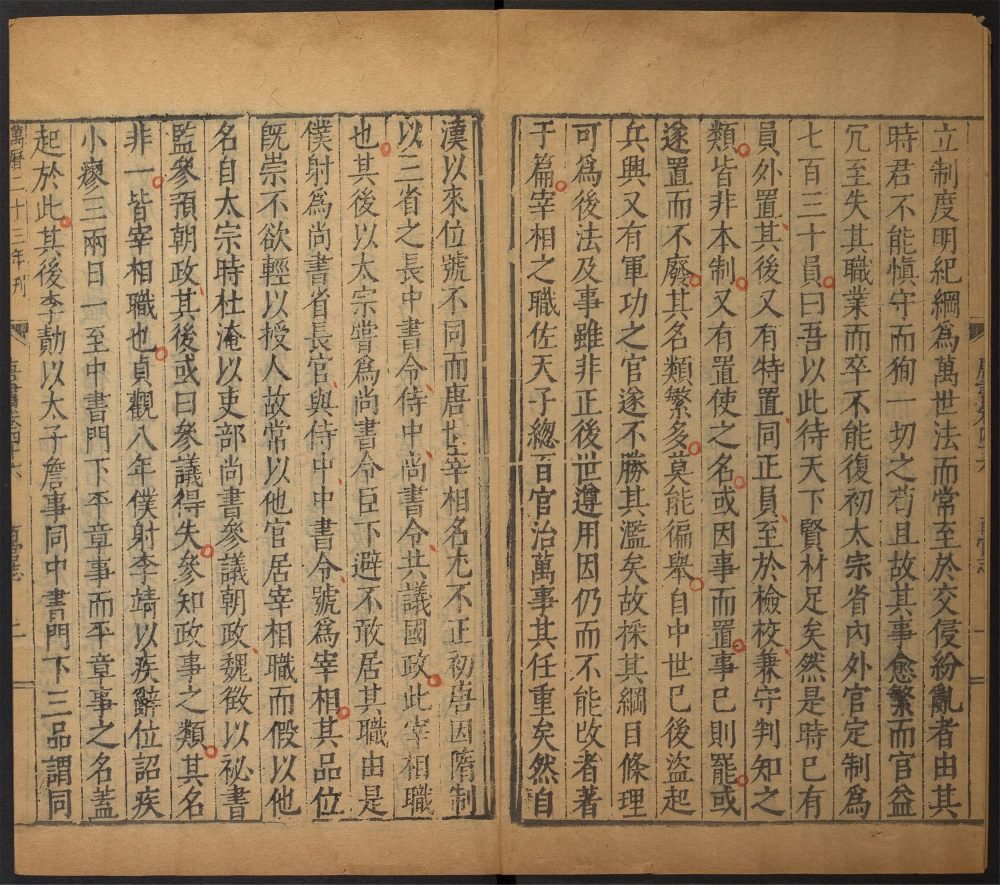 立制度明紀綱爲萬世法而常至於交侵紛亂者由其
時君不能愼守而徇一切之苟且故其事愈繁而官益
冗至失其職業而卒不能復初太宗省內外官定制爲
七百三十員曰吾以此待天下賢材足矣然是時已有
員外置其後又有特置同正員至於檢校兼守判知之
類皆非本制又有置使之名或因事而置事已則罷或
遂置而不廢其名類繁多莫能徧舉自中世已後盜起
兵興又有軍功之官遂不勝其濫矣故採其綱目條理
可爲後法及事雖非正後世遵用因仍而不能改者著
于篇宰相之職佐天子總百官治萬事其任重矣然自
漢以來位號不同而唐世宰相名尤不正初唐因隋制
以三省之長中書令侍中尚書令共議國政此宰相職
也其後以太宗嘗爲尚書令臣下避不敢居其職由是
僕射爲尚書省長官與侍中中書令號爲宰相其品位
旣崇不欲輕以授人故常以他官居宰相職而假以他
名自太宗時杜淹以吏部尚書參議朝政魏徵以祕書
監參預朝政其後或曰參議得失參知政事之類其名
非一皆宰相職也貞觀八年僕射李靖以疾辭位詔疾
小瘳三兩日一至中書門下平章事而平章事之名蓋
起於此其後李勣以太子詹事同中書門下三品謂同
萬曆二十三年刊